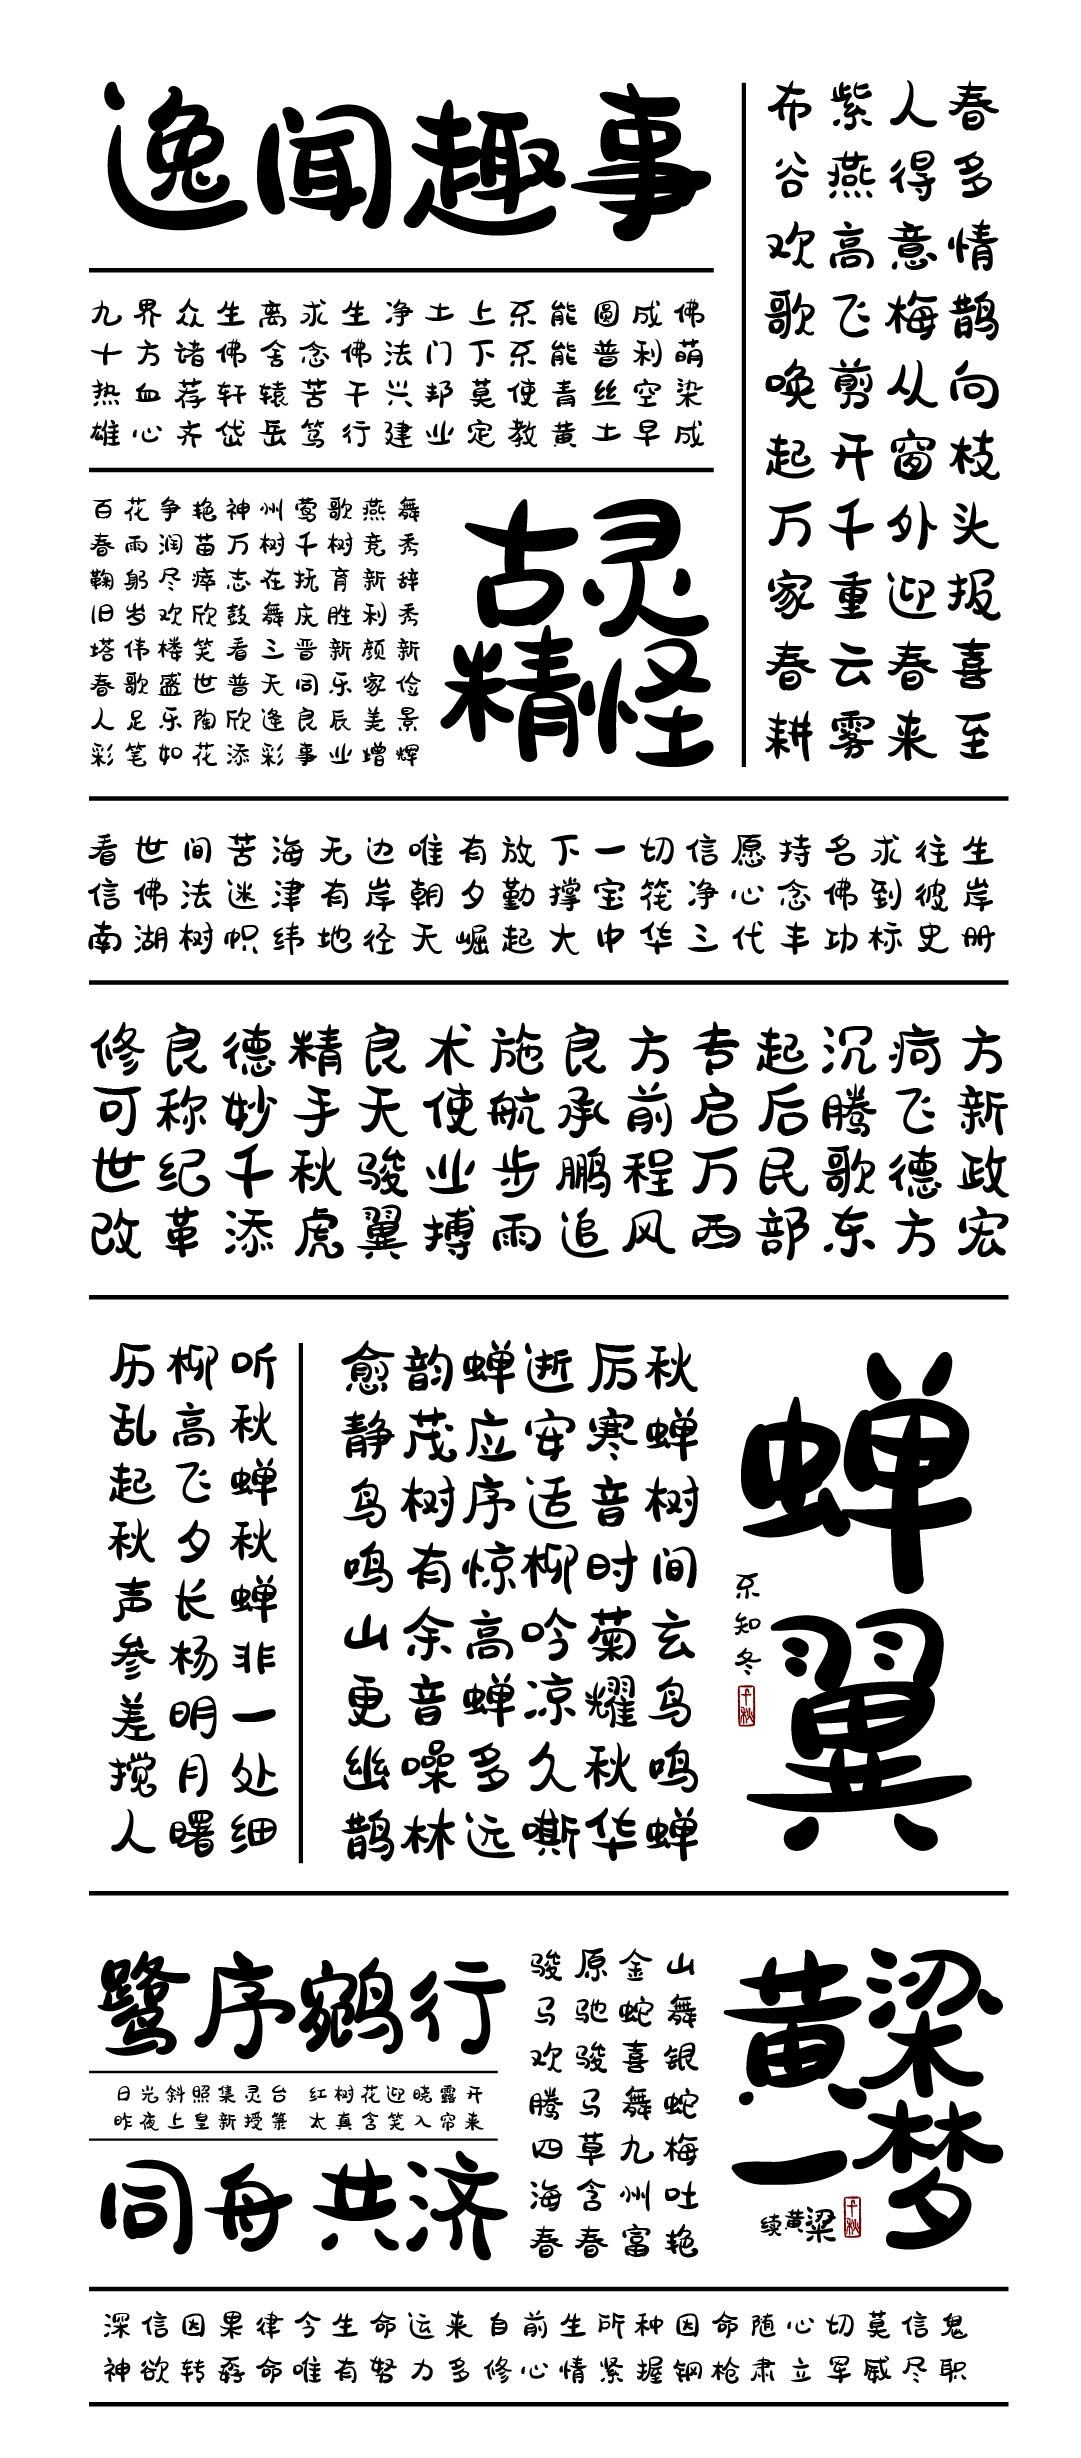 逸闻趣事
春多情鹊向枝头报喜至
人得意梅从窗外迎春来
紫燕高飞剪开千重云雾
布谷欢歌唤起万家春耕
九界众生离求生净土上不能圆成佛
十方诸佛舍念佛法门下不能普利萌
热血荐轩辕苦干兴邦莫使青丝空染
雄心齐岱岳笃行建业定教黄土早成
百花争艳神州莺歌燕舞
春雨润苗万树千树竞秀
鞠躬尽瘁志在抚育新辞
旧岁欢欣鼓舞庆胜利秀
塔伟楼笑看三晋新颜新
春歌盛世普天同乐家俭
人足乐陶欣逢良辰美景
彩笔如花添彩事业增辉
古灵
精怪
看世间苦海无边唯有放下一切信愿持名求往生
信佛法迷津有岸朝夕勤撑宝筏净心念佛到彼岸
南湖树帜纬地径天崛起大中华三代丰功标史册
修良德精良术施良方专起沉疴方
可称妙手天使航承前启后腾飞新
世纪千秋骏业步鹏程万民歌德政
改革添虎翼搏雨追风西部东方宏
蝉翼
不知冬
千秋
秋蝉树间玄鸟鸣蝉
厉寒音时菊耀秋华
逝安适柳吟凉久嘶
蝉应序惊高蝉多远
韵茂树有余音噪林
愈静鸟鸣山更幽鹊
听秋蝉秋蝉非一处细
柳高飞夕长杨明月曙
历乱起秋声参差搅人
鹭序鹓行
日光斜照集灵台 红树花迎晓露开
昨夜上皇新授箓 太真含笑入帘来
同舟共济
黄粱
一梦
续黄粱
千秋
山舞银蛇梅吐艳
金蛇喜舞九州富
原驰骏马草含春
骏马欢腾四海春
深信因果律今生命运来自前生所种因命随心切莫信鬼
神欲转孬命唯有努力多修心情紧握钢枪肃立军威尽职